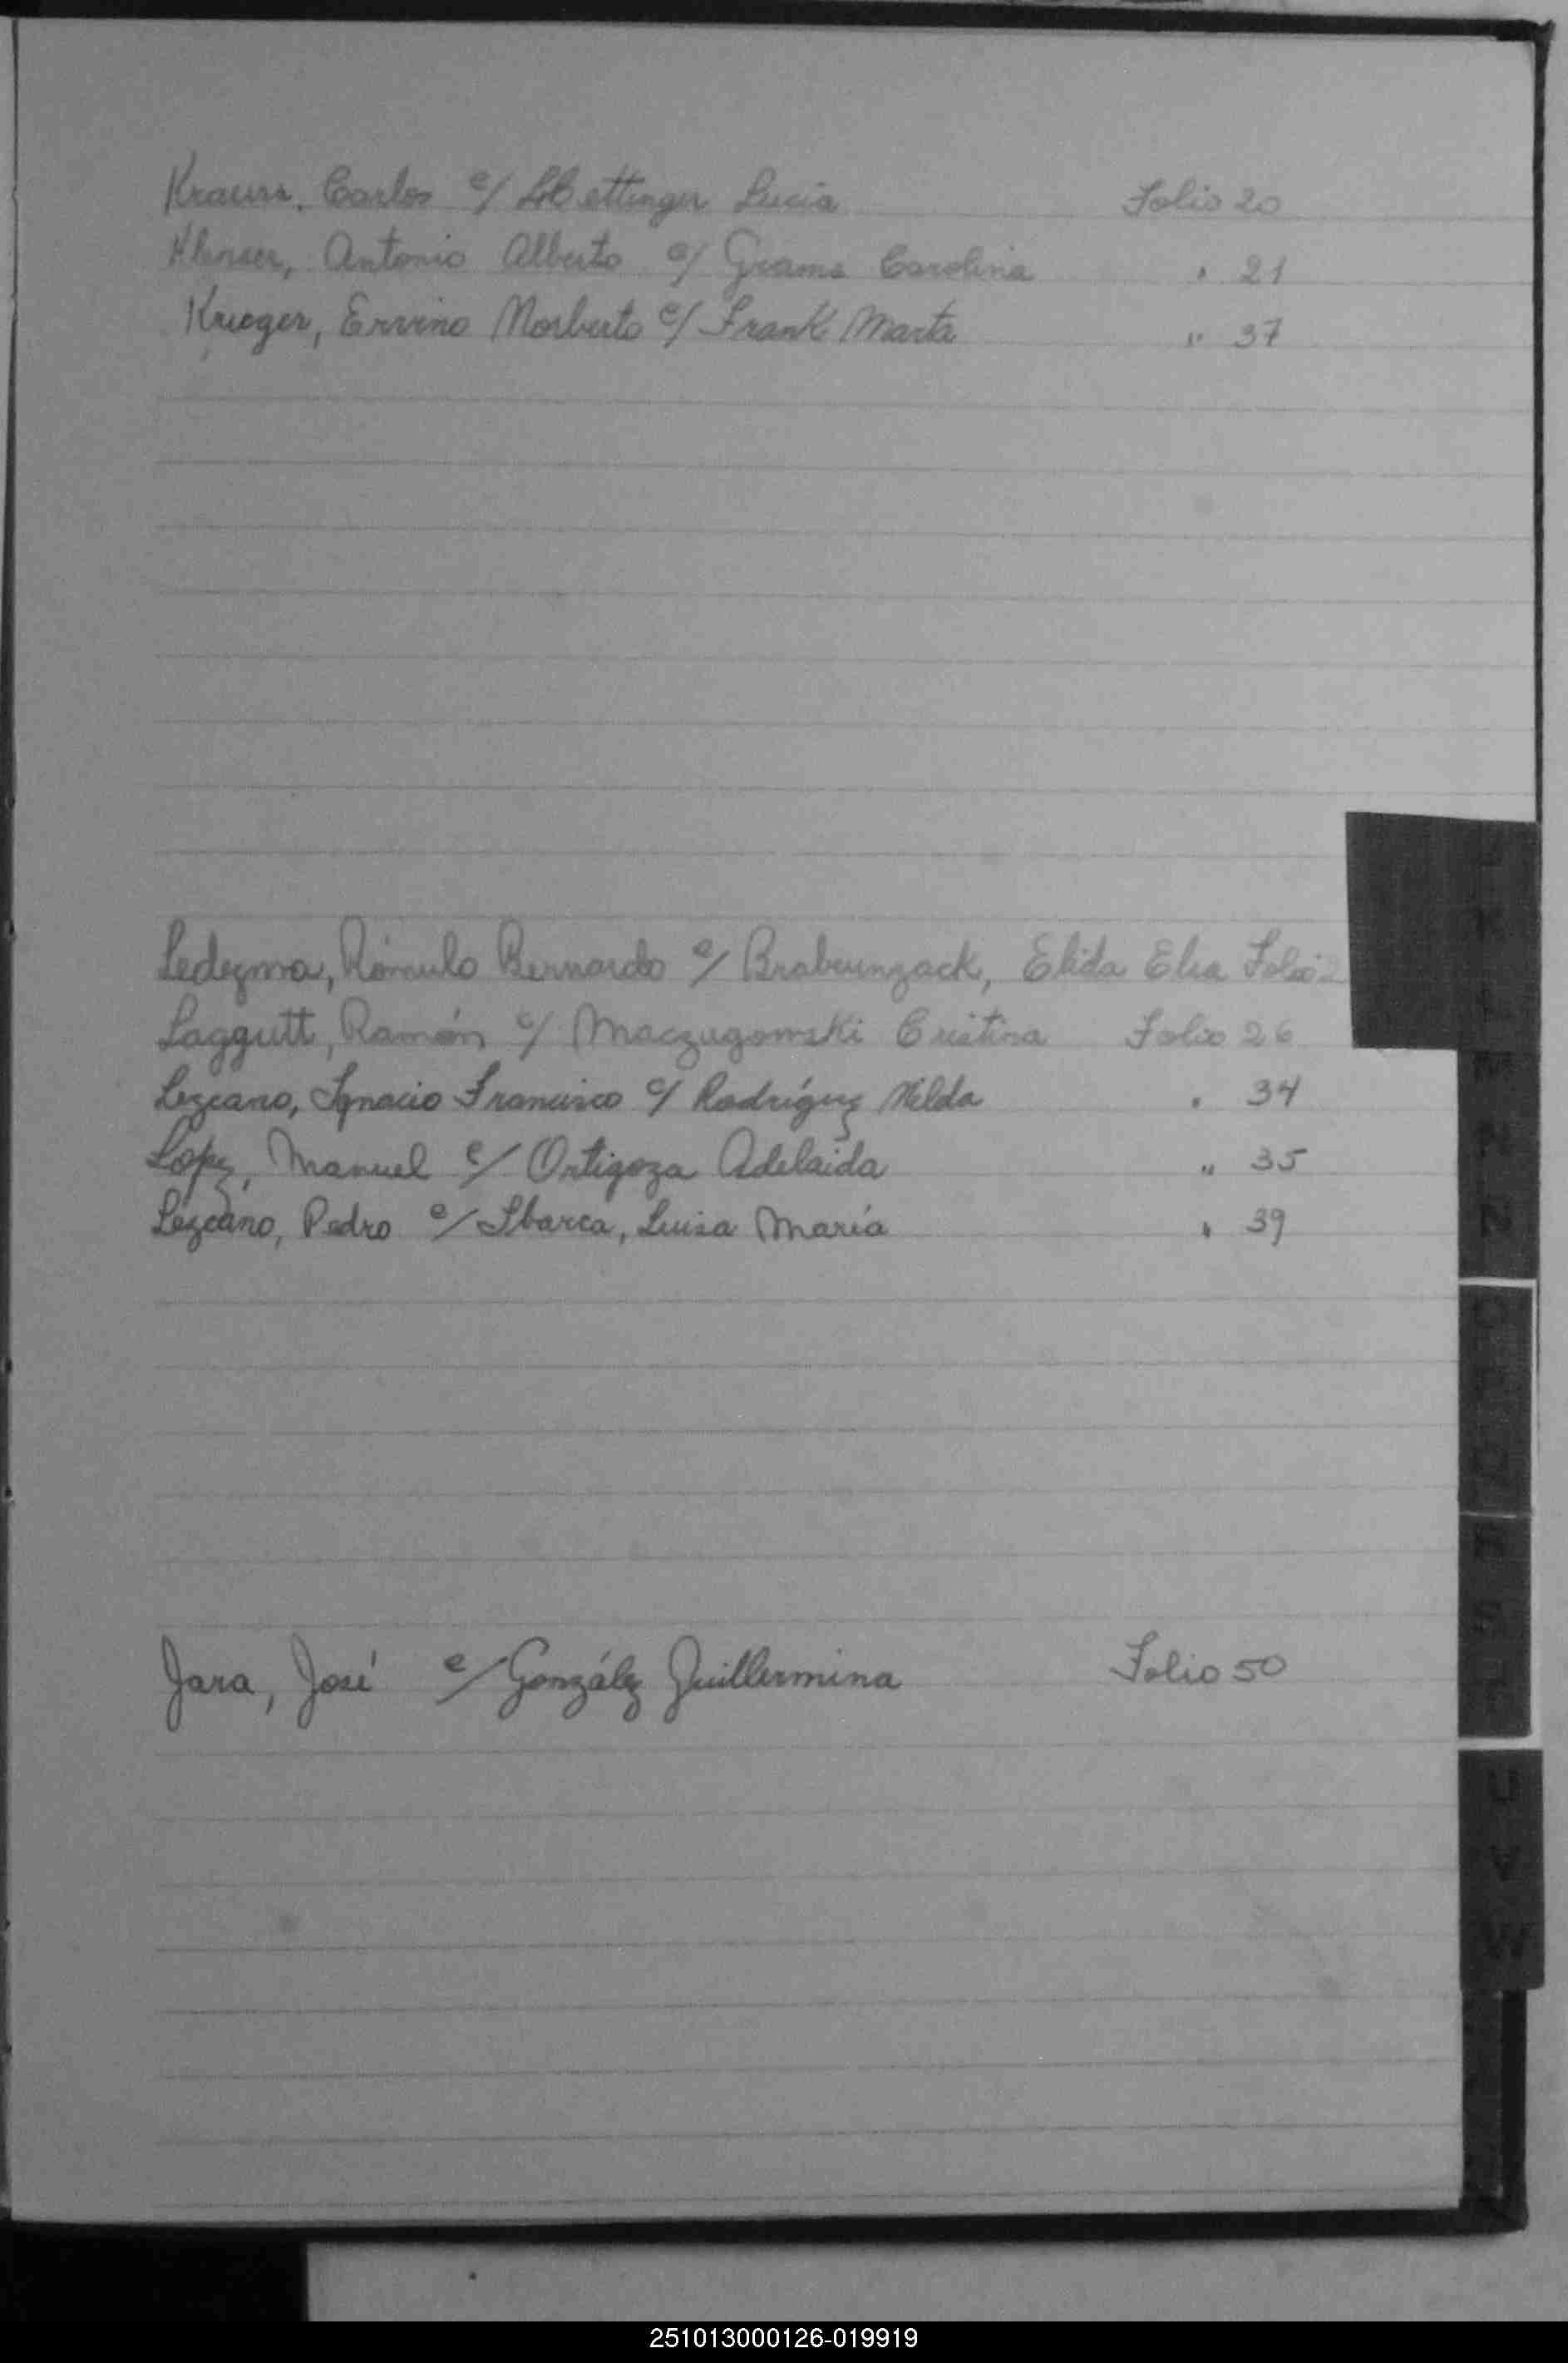 Krauss, Carlos c/ Hettinger Lucia Folio 20
Antonio Alberto c/ Grams Carolina " 21
Krieger, Ervino Norberto c/ Frank Marta " 37
Ledezma, Rómulo Bernardo c/ Brabeunzack, Elida Elsa Folio 2
Laggutt, Ramón c/ Maczugowski Cristina Folio 26
Lezcano, Ignacio Francisco c/ Rodríguez Nilda " 34
Lopez, Manuel c/ Ortigoza Adelaida " 35
Lezcano, Pedro c/ Ibarra, Luisa María " 39
Jara, José c/ González Guillermina Folio 50
K
L
M
N
Ñ
S
U
V
W
251013000126-019919